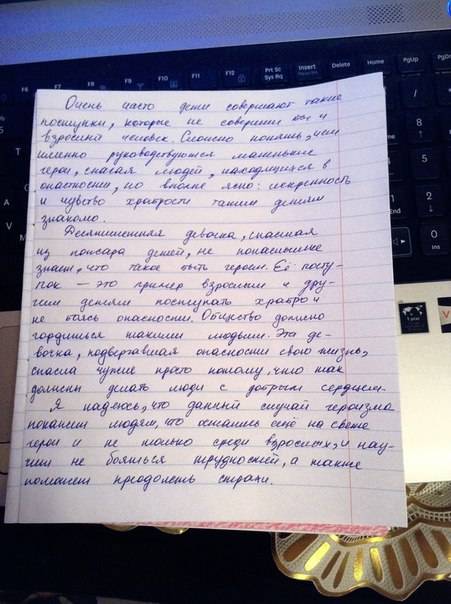 Prt Sc
Sys Rq
Insert
Delete
Home
PgUp
PgDn
F7
F8
F9
F10
F11
F12
Очень часто дети совершают такие
поступки, которые не совершил бы и
взрослый человек. Сложно понять, чем
именно руководствуются маленькие
герои, спасая людей, находящихся в
опасности, но вполне ясно: искренность
и чувство храбрости таким детям
знакомо.
Десятилетняя девочка, спасшая
из пожара детей, не понаслышке
знает, что такое быть героем. Её посту-
пок – это пример взрослым и дру-
гим детям поступать храбро и
не боясь опасности. Общество должно
гордиться такими людьми. Эта де-
вочка, подвергавшая опасности свою жизнь,
спасла чужие просто потому, что так
должны делать люди с добрым сердцем.
Я надеюсь, что данный случай героизма
покажет людям, что остались ещё на свете
герои и не только среди взрослых, и нау-
чит не бояться трудностей, а также
поможет преодолеть страхи.